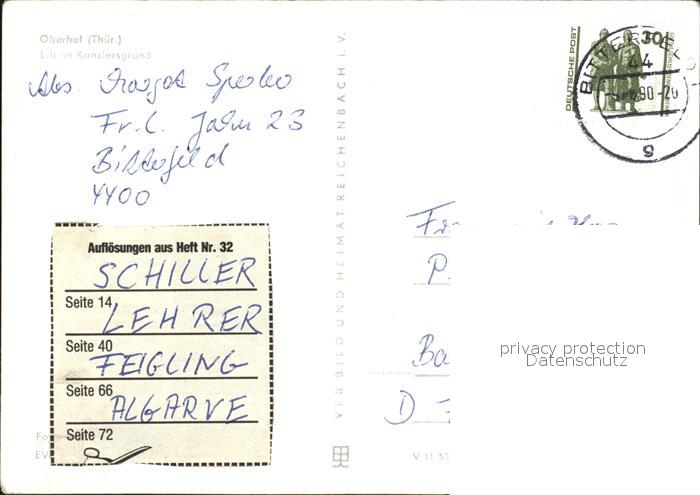 Oberhof (Thür.)
Lift im Kanzlersgrund
Abs.
Fr. L. Jahn 23
Bitterfeld
4400
Auflösungen aus Heft Nr. 32
SCHILLER
Seite 14
LEHRER
Seite 40
FEIGLING
Seite 66
ALGARVE
Seite 72
VEB BILD UND HEIMAT REICHENBACH i. V.
DEUTSCHE POST
30
BITTERFELD
44
90-20
g
privacy protection
Datenschutz
D -
V 11 53